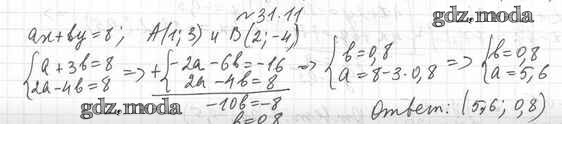 №31.11
gdz.moda
ax+by=8; A(1;3) и B(2;-4)
{a+3b=8 {2a-4b=8 => +{-2a-6b=-16 {2a-4b=8 => {b=0,8 {a=8-3·0,8 => {b=0,8 {a=5,6
-10b=-8
gdz.moda
b=0,8
Ответ: (5,6; 0,8)